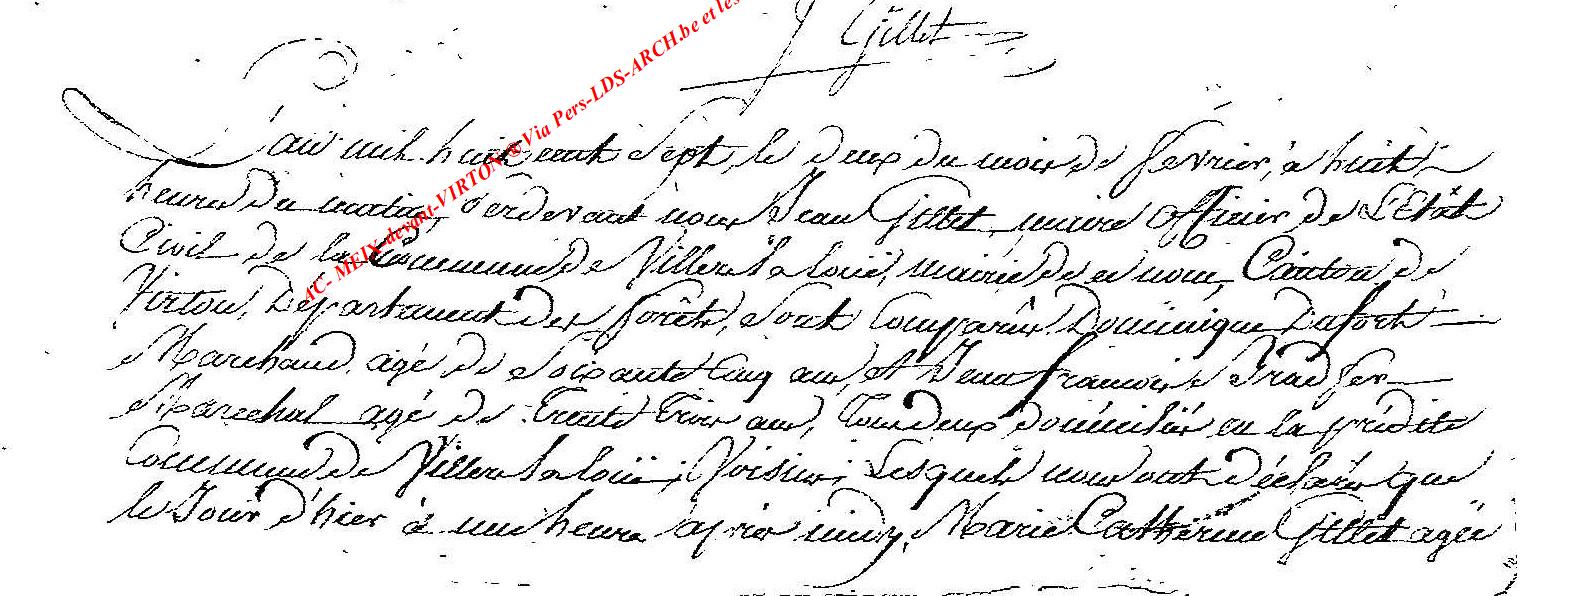 J Gillet
L'an mil huit cent Sept, le deux du mois de fevrier, à huit
heures du matin, Perdevant nous Jean Gillet, maire officier de L'Etât
Civil de la Commune de Villers la loüe, mairie de ce nom, Canton de
Virton, Département des forêts, Sont Comparûs Dominique Lafort
Marchand, agé de Soixante Cinq ans, et Jean francois
Marechal agé de Trente Trois ans, Tous deux domiciliés en la prédite
Commune de Villers la loüe, Voisins, Lesquels nous ont déclarés que
le Jour d'hier à une heure après midy, Marie Catherine Gillet agée
AC- MEIX-devant-VIRTON @ Via Pers-LDS-ARCH.be et les